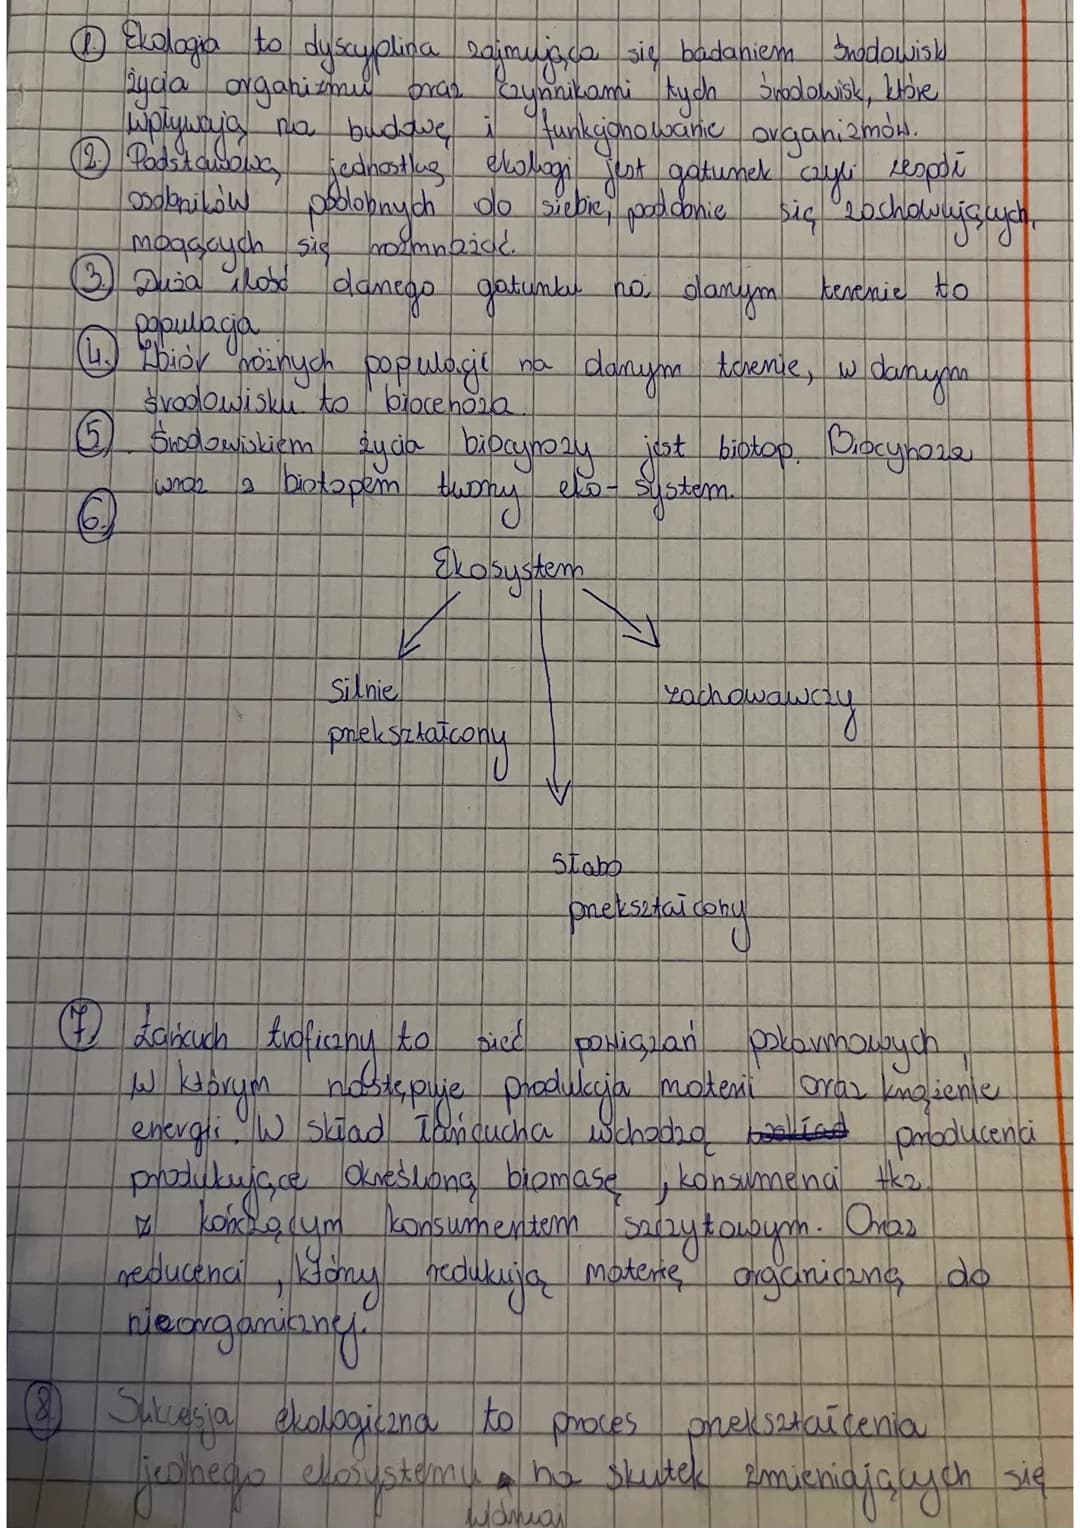 1. Ekologia to dyscyplina zajmująca się badaniem środowisk
życia organizmu oraz czynnikami tych środowisk, które
wpływają na budowę i funkcjonowanie organizmów.
2. Podstawową jednostką ekologi jest gatunek czyli zespół
osobników podobnych do siebie, podobnie się zachowujących,
mogących się rozmnażać.
3. Duża ilość danego gatunku na danym terenie to
populacja
4. Zbiór różnych populacji na danym terenie, w danym
środowisku to biocenoza
5. Środowiskiem życia biocynozy jest biotop. Biocynoza
wraz z biotopem tworzy eko-system.
6.
Ekosystem
Silnie zachowawczy
przekształcony
Słabo
przekształcony
7. Łańcuch troficzny to sieć powiązań pokarmowych,
w którym następuje produkcja materii oraz krążenie
energii. W skład łańcucha wchodzą producenci
produkujące określoną biomasę, konsumenci tkz.
z kończącym konsumentem szczytowym. Oraz
reducenci, którzy redukują materię organiczną do
nieorganicznej.
8. Sukcesja ekologiczna to proces przekształcenia
jednego ekosystemu na skutek zmieniających się